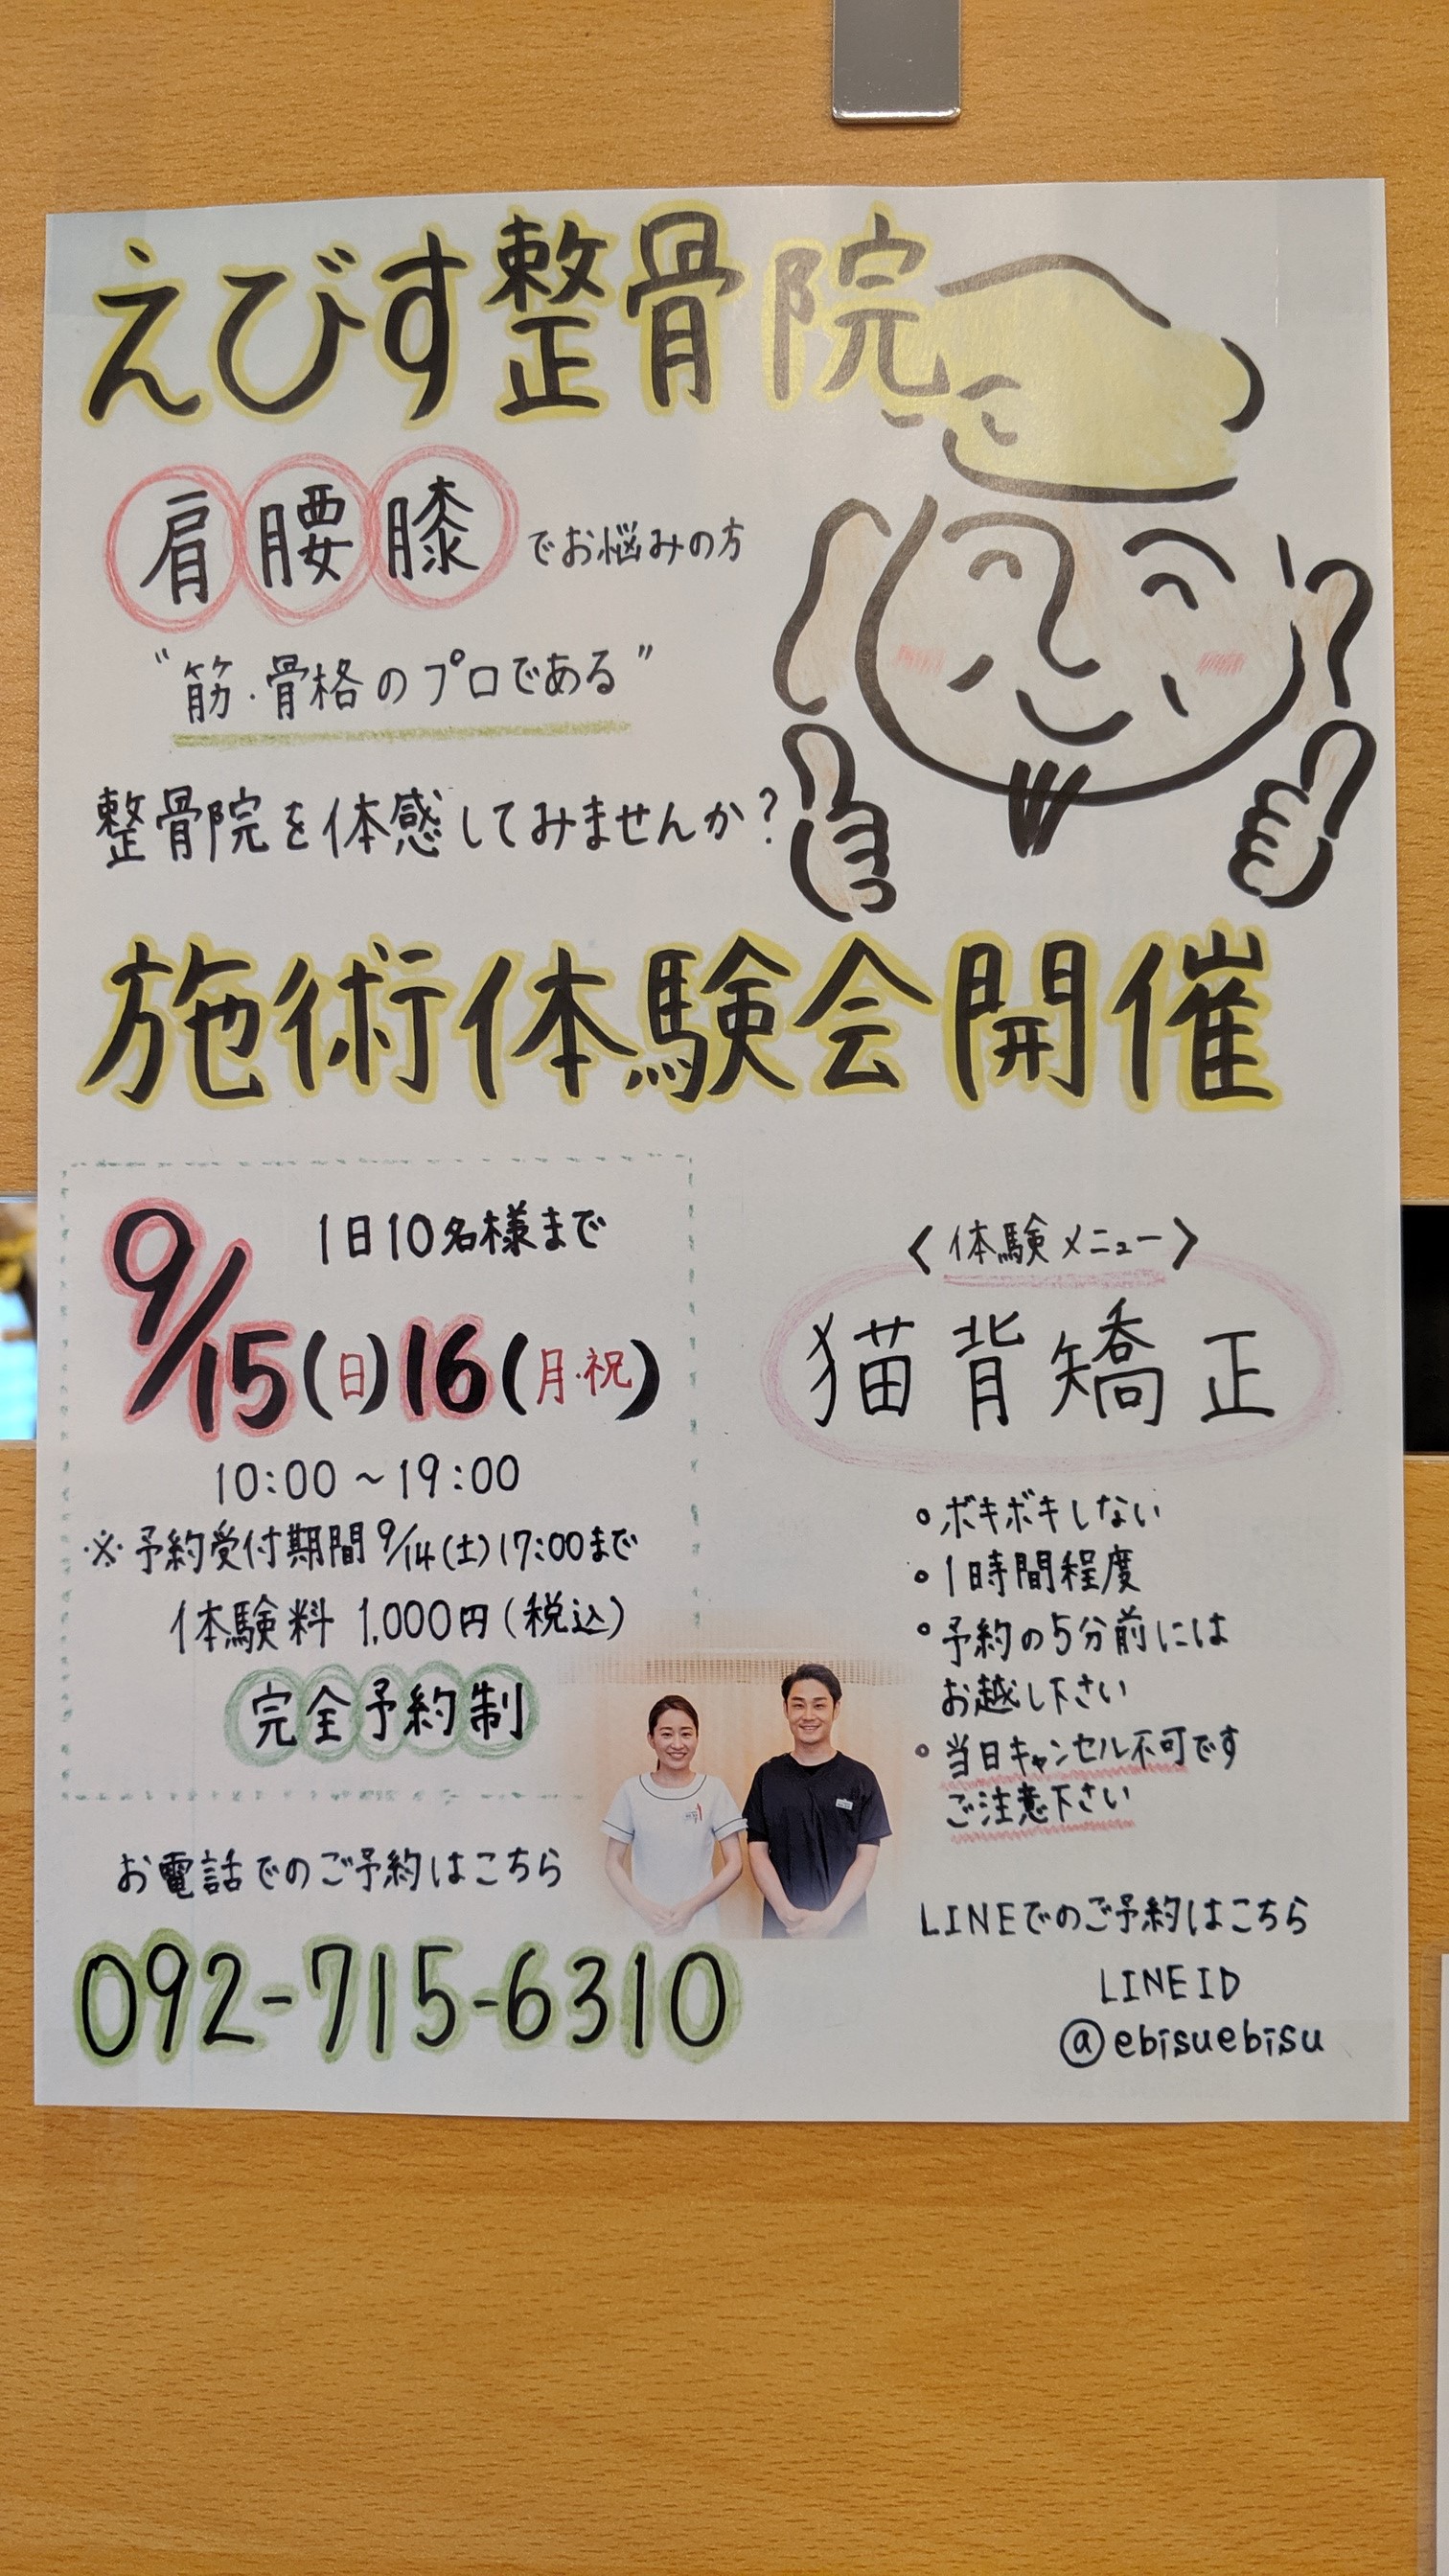 えびす整骨院
肩腰膝でお悩みの方
"筋・骨格のプロである"
整骨院を体感してみませんか？
施術体験会開催
1日10名様まで
9/15(日)16(月・祝)
10:00～19:00
※予約受付期間9/14(土)17:00まで
体験料 1,000円(税込)
完全予約制
お電話でのご予約はこちら
092-715-6310
〈体験メニュー〉
猫背矯正
・ボキボキしない
・1時間程度
・予約の5分前には
お越し下さい
・当日キャンセル不可です
ご注意下さい
LINEでのご予約はこちら
LINE ID
@ebisuebisu